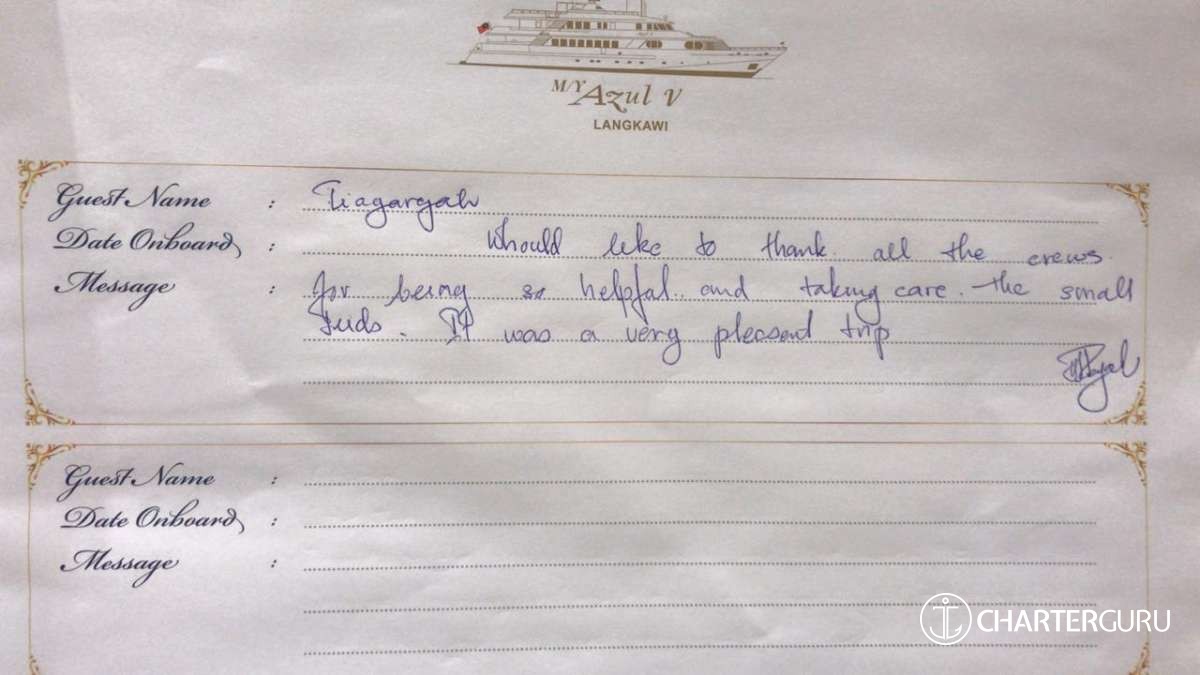 M/Y Azul V
LANGKAWI
Guest Name :
Date Onboard : Whould like to thank. all the crews.
Message : for being so helpful.. and taking care. the small
It was a very pleasant trip
Guest Name :
Date Onboard :
Message :
CHARTERGURU